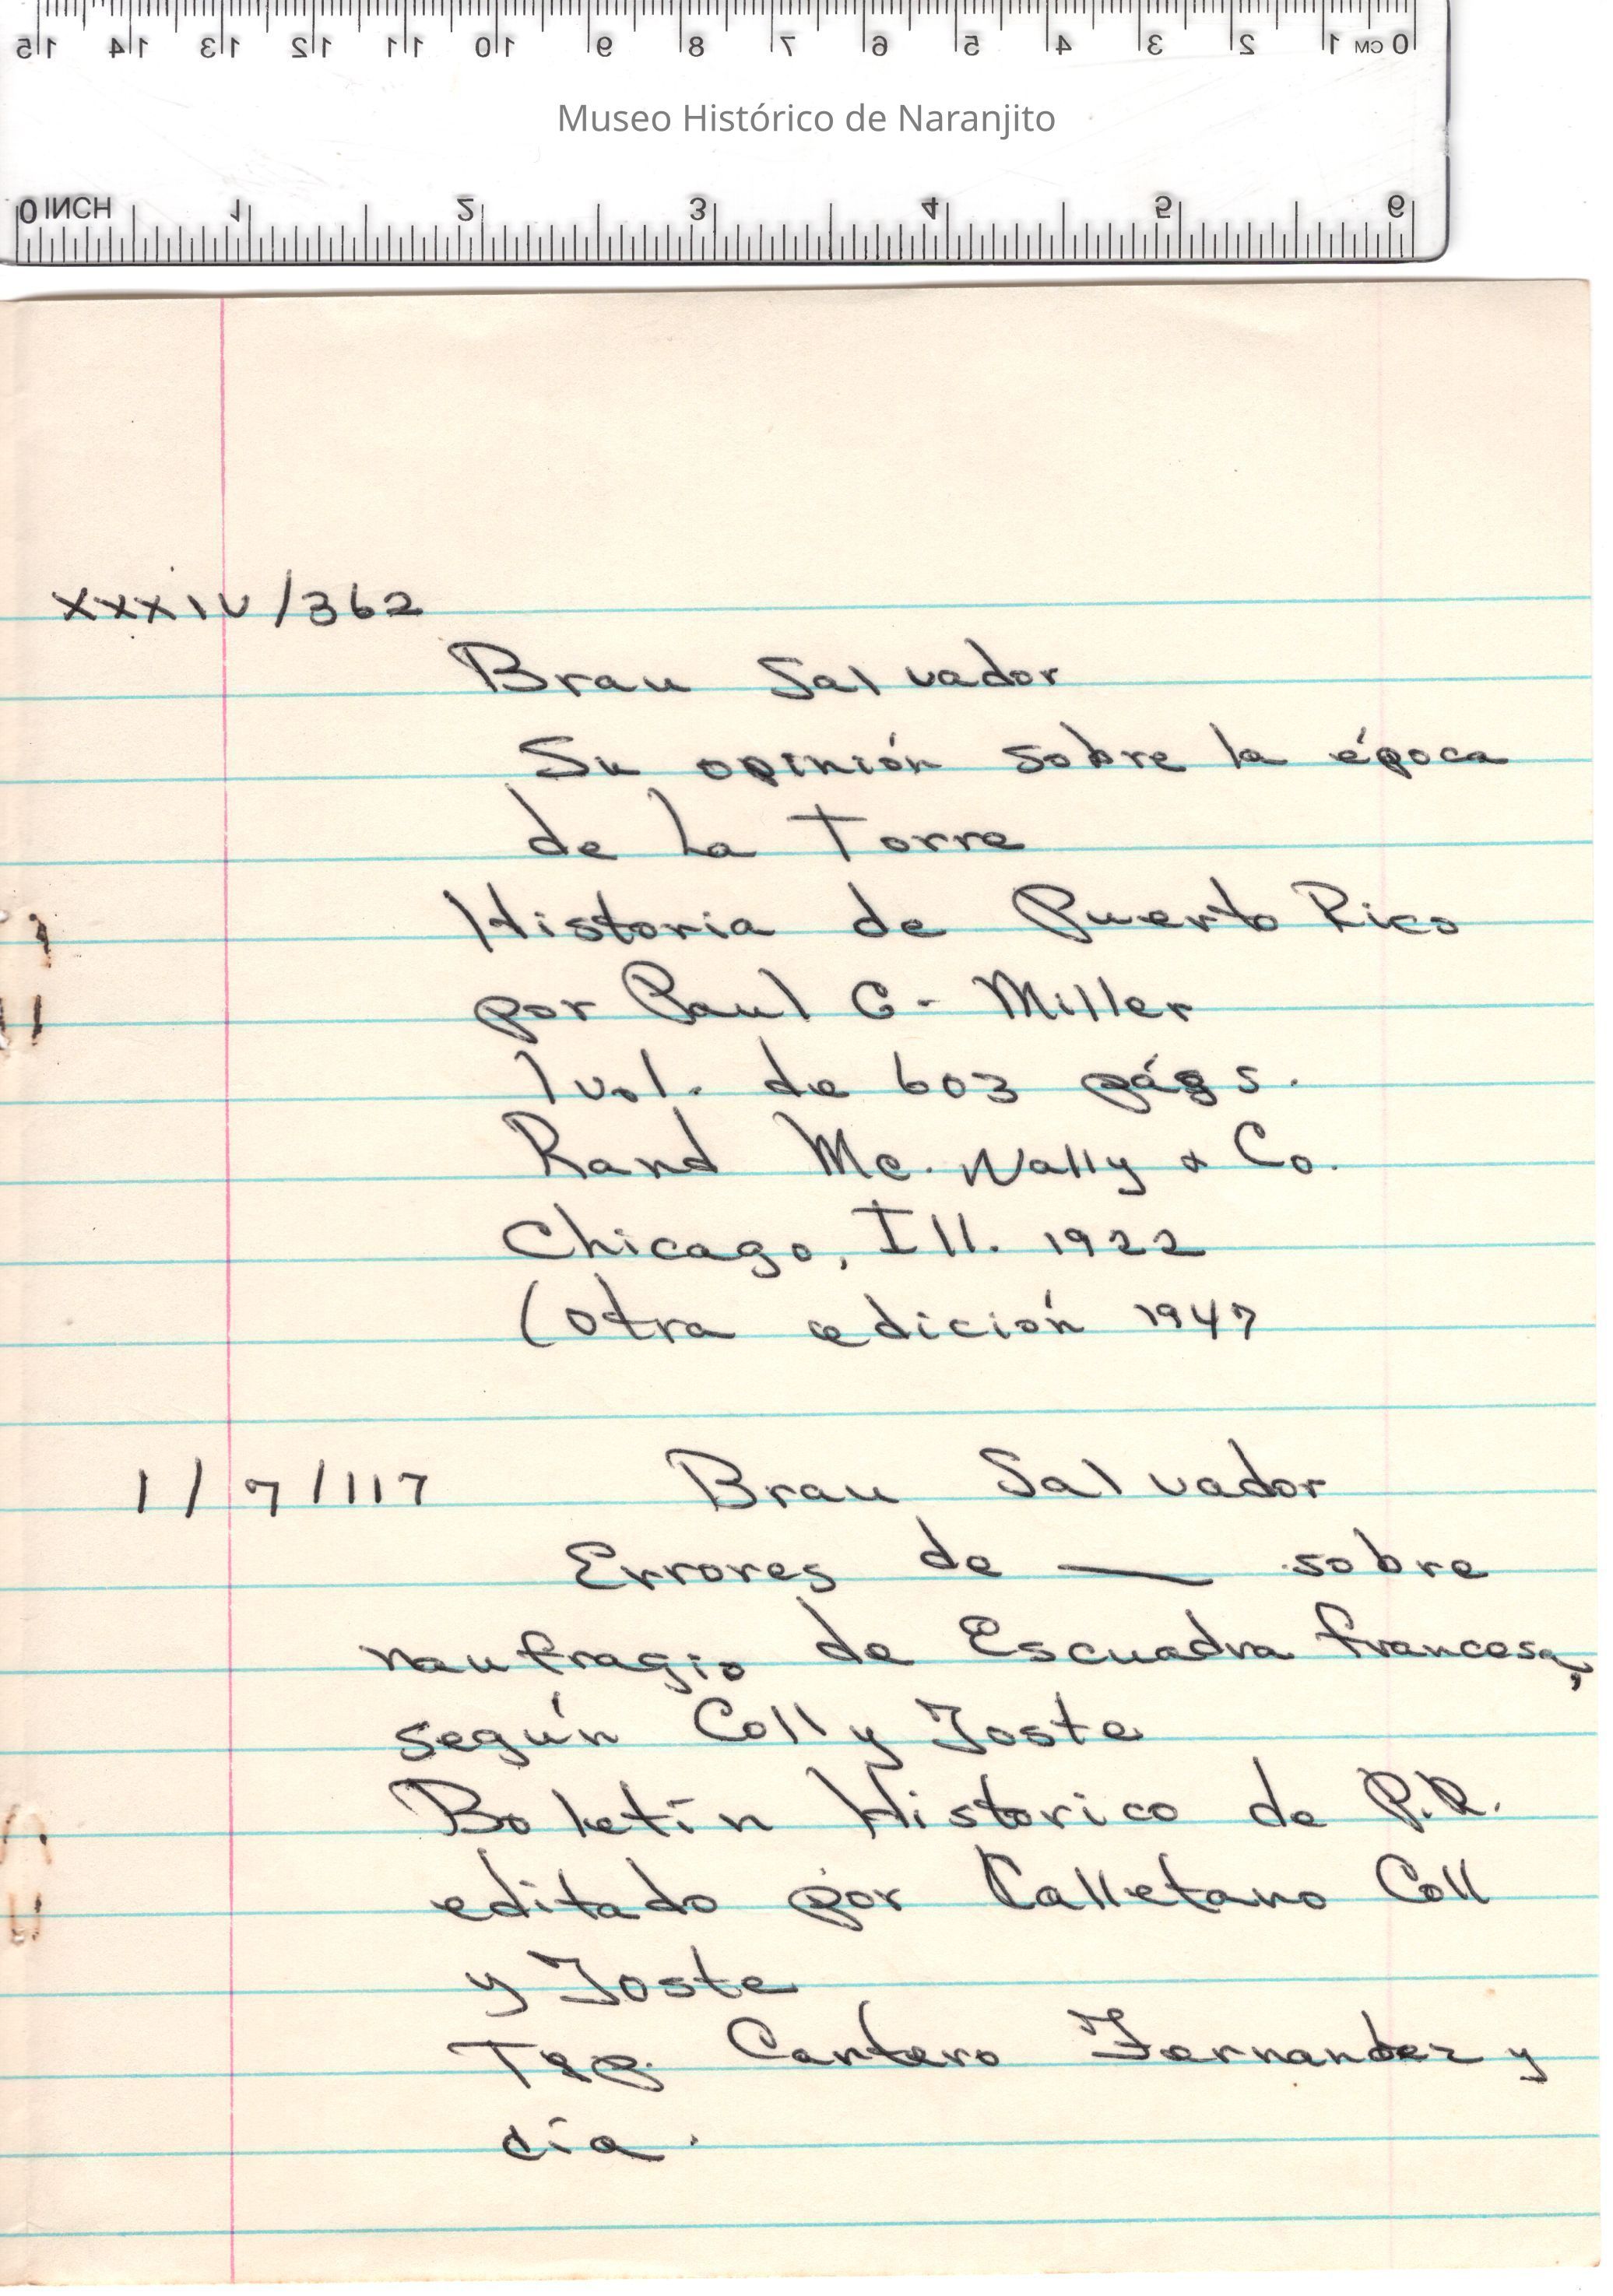 15 14 13 12 11 10 9 8 7 6 5 4 3 2 1 CM 0
Museo Histórico de Naranjito
0 INCH 1 2 3 4 5 6
XXXIV/362
Brau Salvador
Su opinión sobre la época
de La Torre
Historia de Puerto Rico
por Paul G- Miller
1 vol. de 603 págs.
Rand Mc. Nally & Co.
Chicago, Ill. 1922
(otra edición 1947
1/7/117 Brau Salvador
Errores de — sobre
naufragio de Escuadra francesa,
según Coll y Toste
Boletín Historico de P.R.
editado por Calletano Coll
y Toste
Tip. Cantero Fernandez y
cía.